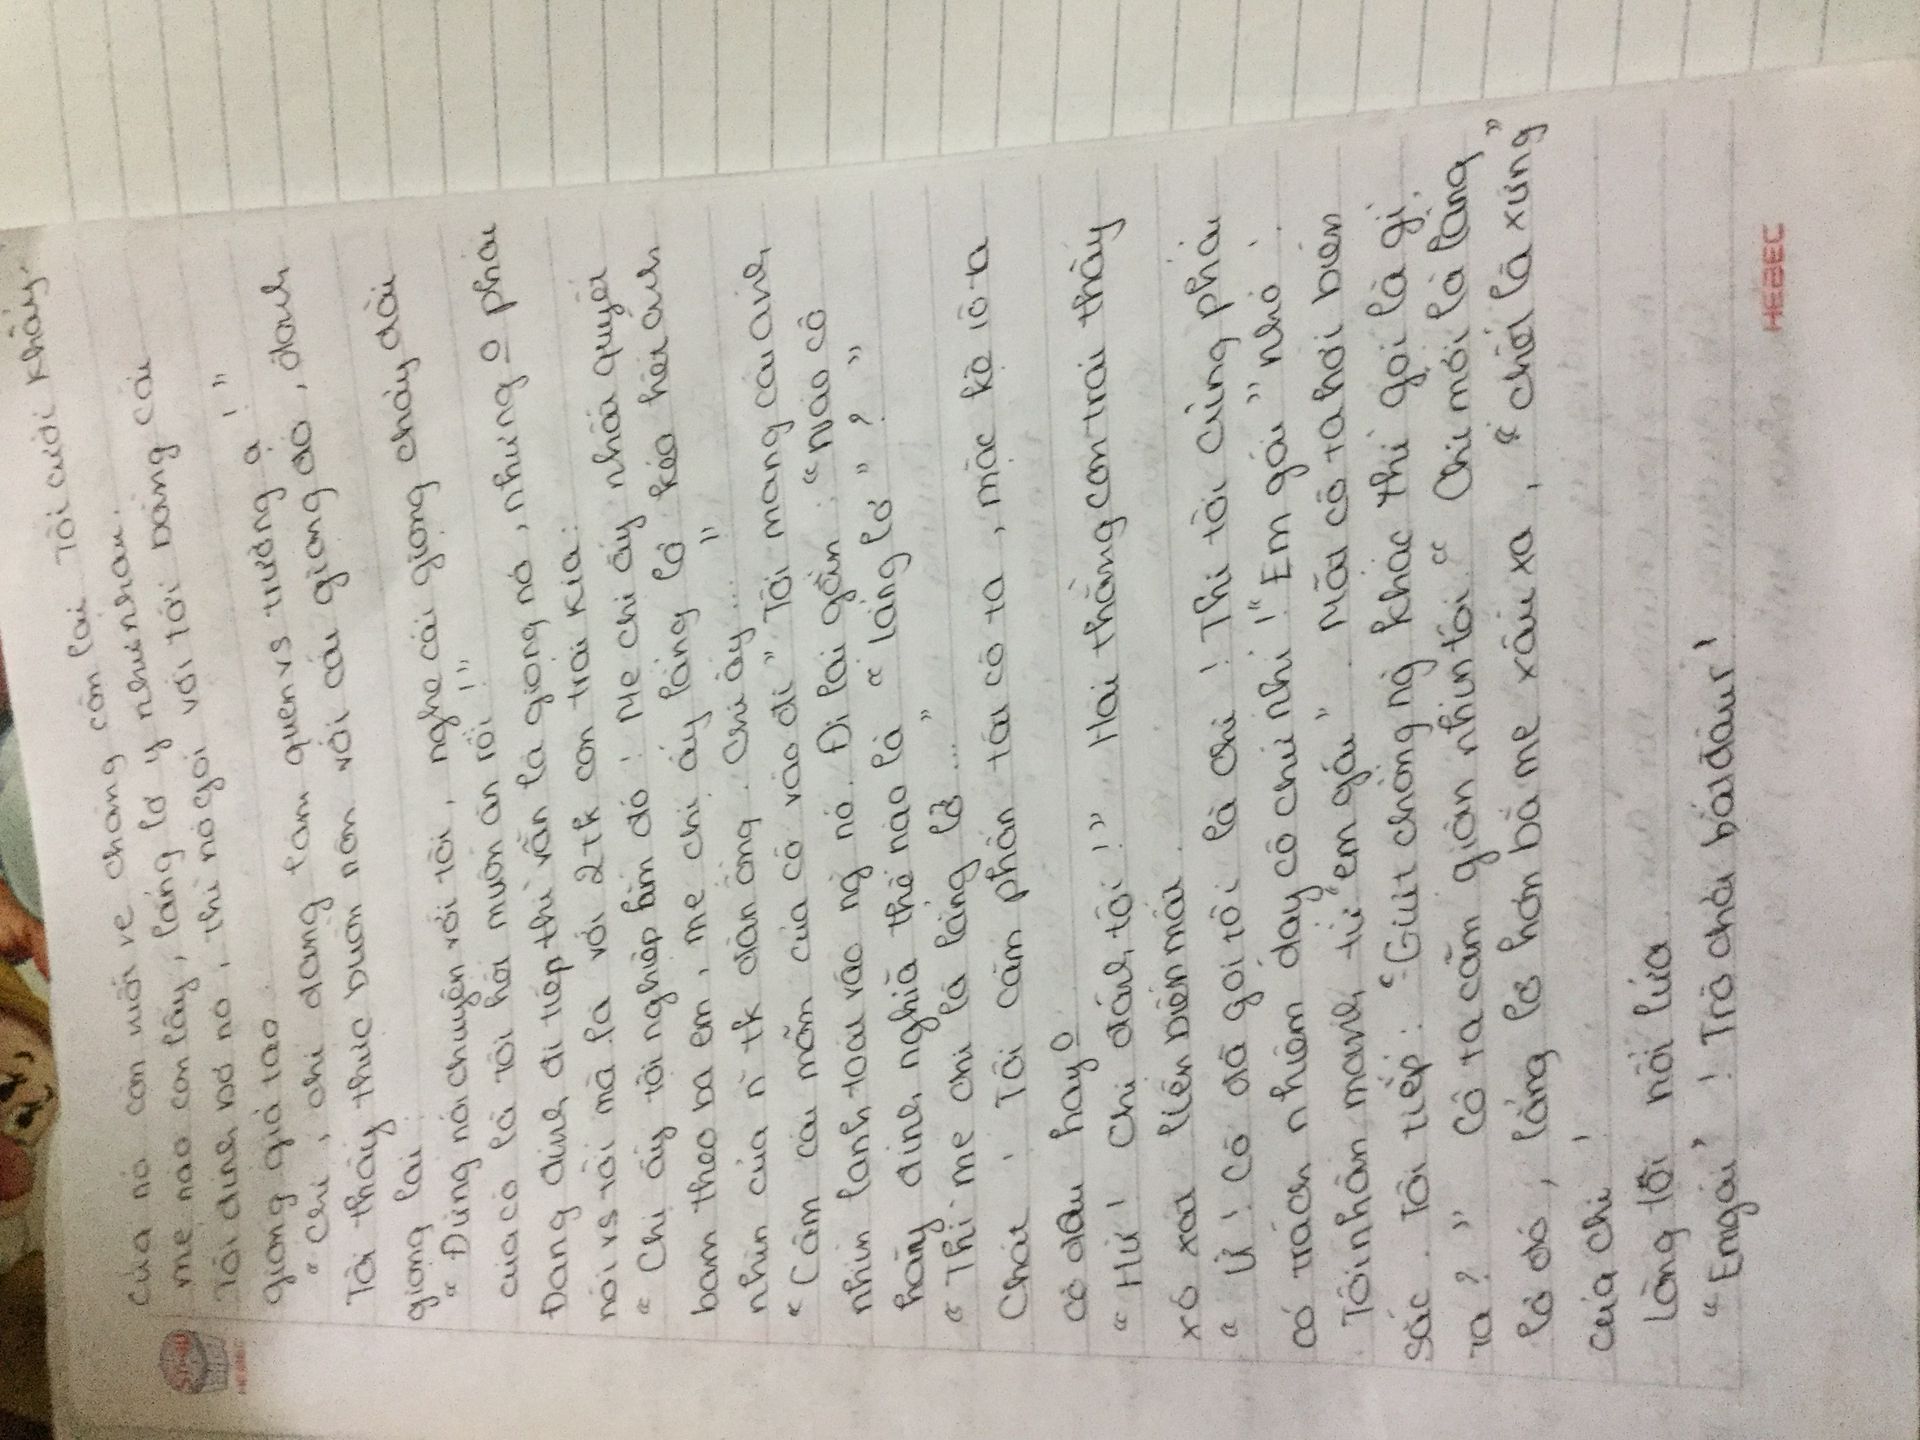 của nó còn mới vẻ chẳng còn lại. Tôi cười khẩy
mẹ nào con lấy, lẳng lơ y như nhau.
Tôi định bơ nó, thì nó gọi với tới bằng cái
giọng giả tạo. !"
"Chị, chị đang làm quen vs trường ạ
Tôi thấy thực buồn nôn với cái giọng đó, đanh
giọng lại.
"Đừng nói chuyện với tôi, nghe cái giọng chảy dài
của cô là tôi hơi muốn ăn rồi !"
Đang định đi tiếp thì vẫn là giọng nó, nhưng 0 phải
nói vs tôi mà là với 2 tk con trai kia:
"Chị ấy tội nghiệp lắm đó! Mẹ chị ấy nhất quyết
bám theo ba em, mẹ chị ấy lẳng lơ kéo hết ánh
nhìn của ñ tk đàn ông. Chị ấy... "
"Câm cái mõm của cô vào đi" Tôi mang cái ánh
nhìn lạnh toát vào ng nó. Đi lại gần: "Nào cô
hãy định nghĩa thế nào là "lẳng lơ" ? "
"Thì mẹ chị là lẳng lơ... "
Chát ! Tôi cầm phăn tát cô ta, mặc kệ cô ta
có đau hay 0
"Hư! Chị đánh tôi !" Hai thằng con trai thấy
xót xa liền biến mất.
"Ừ! Cô đã gọi tôi là chị! Thì tôi cũng phải
có trách nhiệm dạy cô chứ nhỉ !"Em gái" nhỏ.
Tôi nhấn mạnh từ "em gái". Mặt cô ta hơi biến
sắc. Tôi tiếp: "Giựt chồng ng khác thì gọi là gì
ta? " Cô ta căm giận nhìn tôi. "Chị mới là lẳng
lơ đó, lẳng lơ hơn bà mẹ xấu xa, chết là xứng"
của chị !
Lòng tôi nổi lửa
"Em gái" ! Trò chơi bắt đầu !
HEBEC
HEBEC